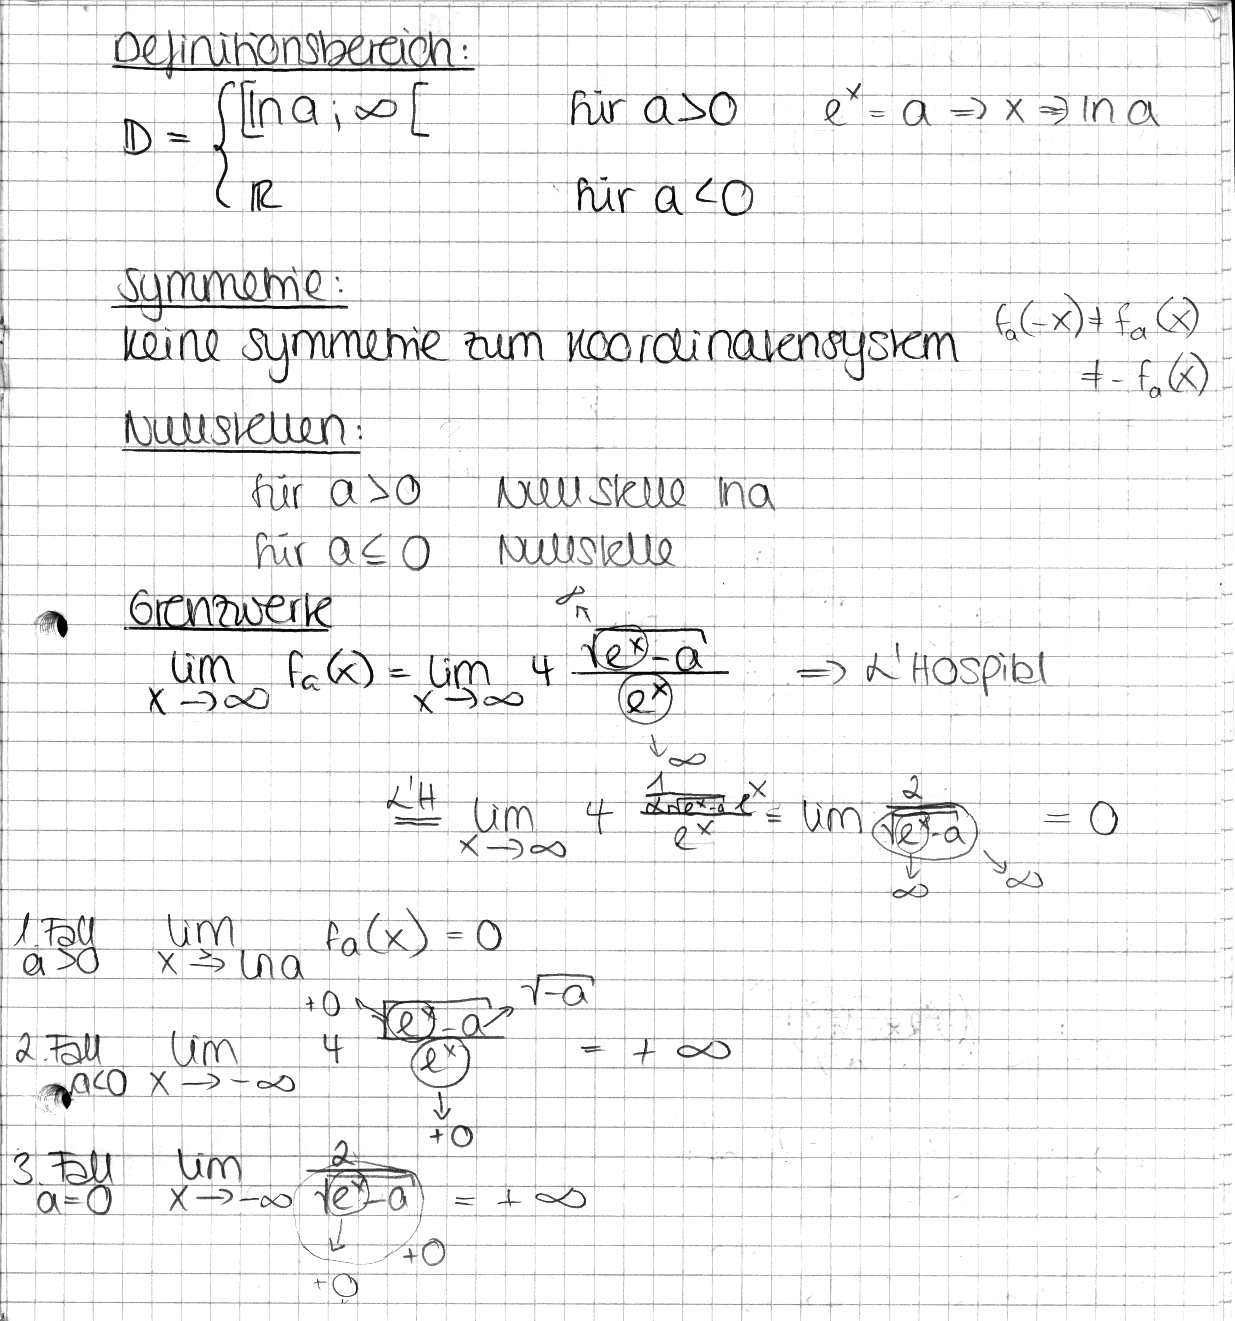 Definitionsbereich:
D = { [ln a ; ∞[ für a>0 e^x = a => x => ln a
ℝ für a<0
Symmetrie:
Keine Symmetrie zum Koordinatensystem f_a(-x) ≠ f_a(x)
≠ - f_a(x)
Nullstellen:
für a>0 Nullstelle ln a
für a ≤ 0 Nullstelle
Grenzwerte
lim x→∞ f_a(x) = lim x→∞ 4 √(e^x - a) / e^x => L'Hospital
∞
↓ ∞
L'H = lim x→∞ 4 (1/(2√(e^x - a)) e^x) / e^x = lim 2/√(e^x - a) = 0
↓ ∞ ↘ ∞
1. Fall a>0 lim x→ ln a f_a(x) = 0
+0 √-a
2. Fall a<0 lim x→-∞ 4 √(e^x - a) / e^x = + ∞
↓ +0
3. Fall a=0 lim x→-∞ 2/√(e^x - a) = + ∞
↓ +0
+0